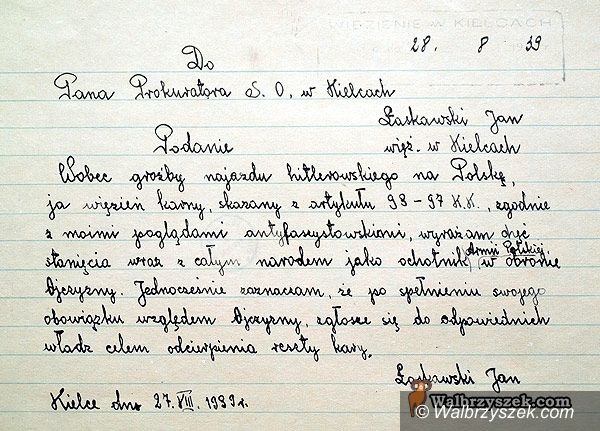 WIĘZIENIE W KIELCACH
28. 8 39
Do
Pana Prokuratora S. O. w Kielcach
Łaskawski Jan
Podanie więź. w Kielcach
Wobec groźby najazdu hitlerowskiego na Polskę,
ja więzień karny, skazany z artykułu 98-97 K.K., zgodnie
z moimi poglądami antyfaszystowskimi, wyrażam chęć
Armii Polskiej
stanięcia wraz z całym narodem jako ochotnik w obronie
Ojczyzny. Jednocześnie zaznaczam, że po spełnieniu swojego
obowiązku względem Ojczyzny, zgłoszę się do odpowiednich
władz celem odcierpienia reszty kary.
Łaskawski Jan
Kielce dn. 27. VIII. 1939 r.
Walbrzyszek.com
© Walbrzyszek.com